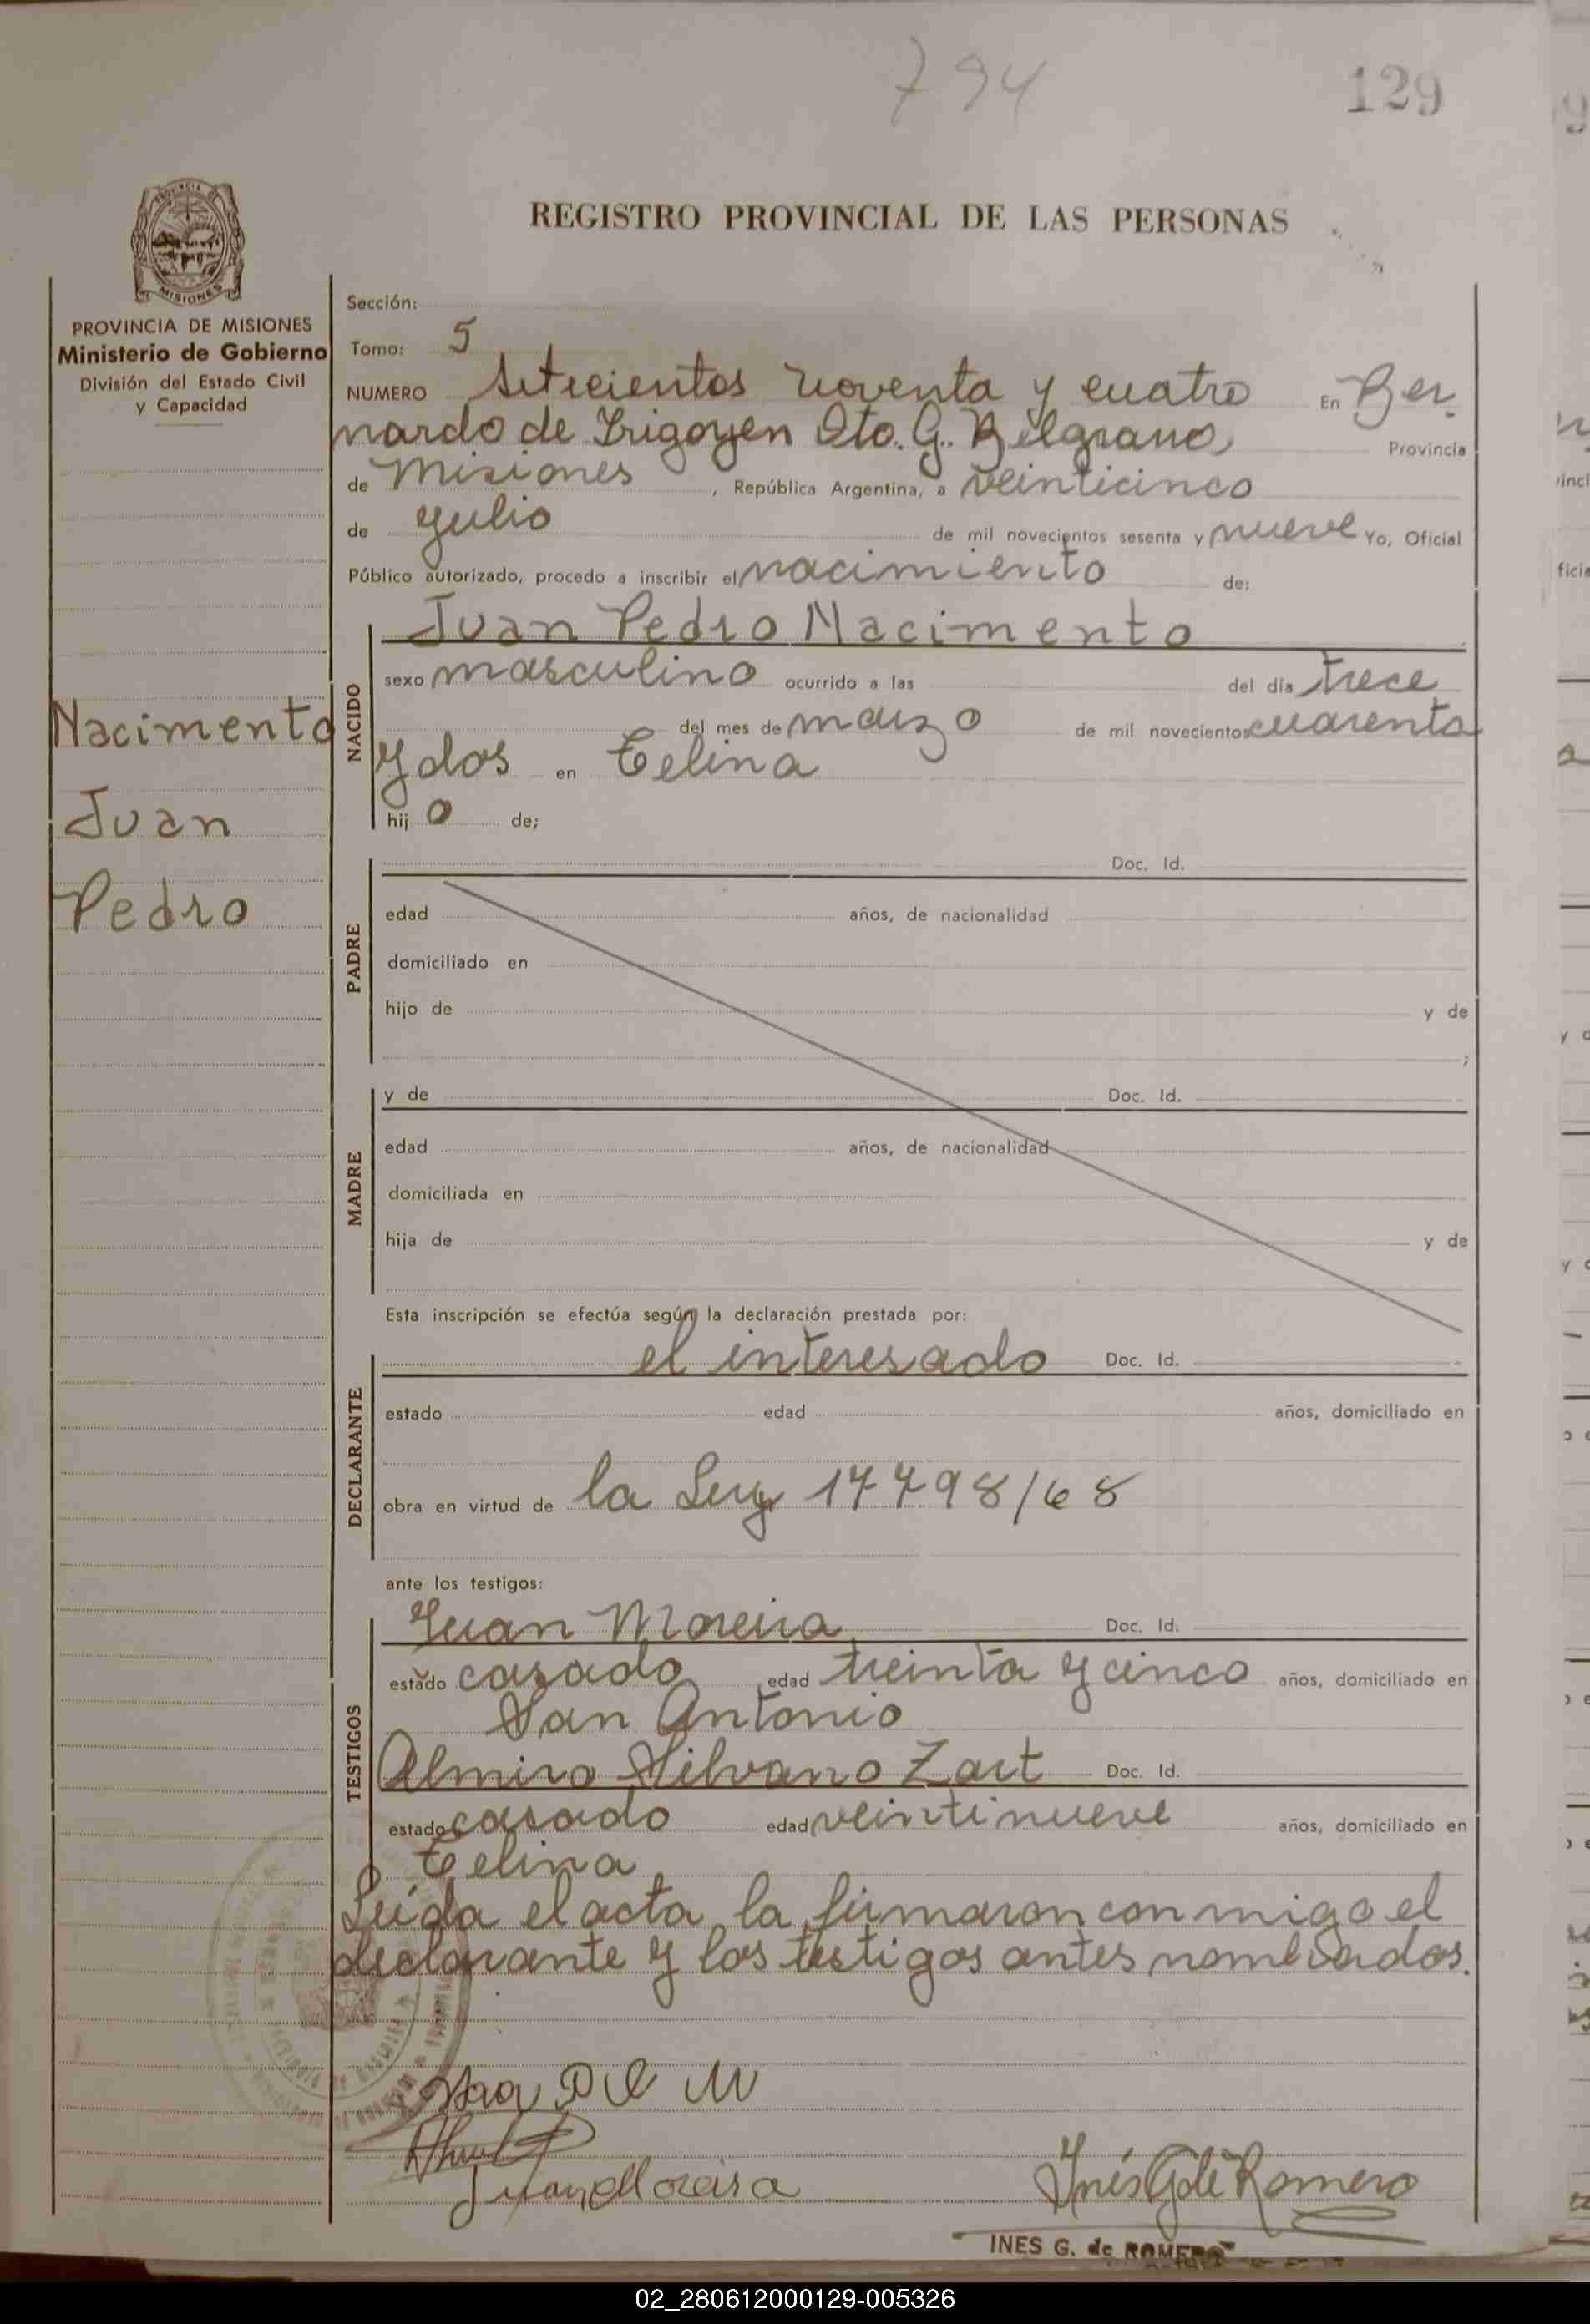 794
129
REGISTRO PROVINCIAL DE LAS PERSONAS
MISIONES
PROVINCIA DE MISIONES
Ministerio de Gobierno
División del Estado Civil
y Capacidad
Nacimento
Juan
Pedro
Sección:
Tomo: 5
NUMERO Setecientos noventa y cuatro En Ber
nardo de Irigoyen Dto. G. Belgrano Provincia
de Misiones, República Argentina, a veinticinco
de Julio de mil novecientos sesenta y nueve Yo, Oficial
Público autorizado, procedo a inscribir el nacimiento de:
NACIDO
Juan Pedro Nacimento
sexo masculino ocurrido a las del día trece
del mes de marzo de mil novecientos cuarenta
y dos en Celina
hij o de;
PADRE
Doc. Id.
edad años, de nacionalidad
domiciliado en
hijo de y de
;
MADRE
y de Doc. Id.
edad años, de nacionalidad
domiciliada en
hija de y de
Esta inscripción se efectúa según la declaración prestada por:
DECLARANTE
el interesado Doc. Id.
estado edad años, domiciliado en
obra en virtud de la Ley 17798/68
ante los testigos:
TESTIGOS
Juan Moreira Doc. Id.
estado casado edad treinta y cinco años, domiciliado en
San Antonio
Almiro Silvano Zart Doc. Id.
estado casado edad veintinueve años, domiciliado en
Celina
Leída el acta, la firmaron conmigo el
declarante y los testigos antes nombrados.
Juan Moreira
Inés G de Romero
INES G. de ROMERO
02_280612000129-005326